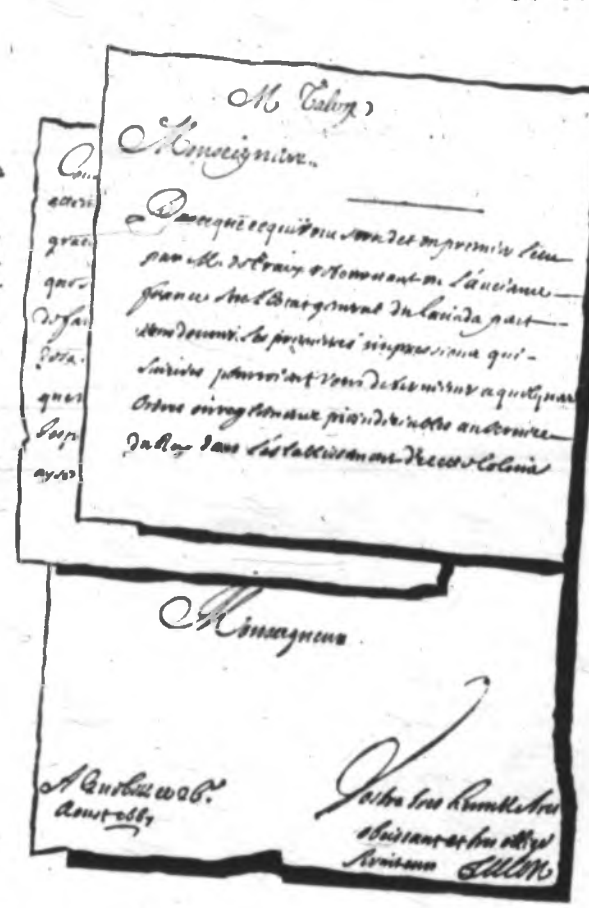 M Talon
Monseigneur.
Parceque ce qui vous sera dit en premier lieu
par Mr. de Tracy retournant en l'ancienne
france sur l'Estat general du Canada peut
vous donner des premieres impressions qui
suivies pourroient vous determiner a quelques
Ordres ou reglemens prejudiciables au service
du Roy dans l'establissement de cette Colonie
Monseigneur
A Quebec ce 26e.
Aoust 1667
Vostre tres humble tres
obeissant et tres obligé
serviteur Talon